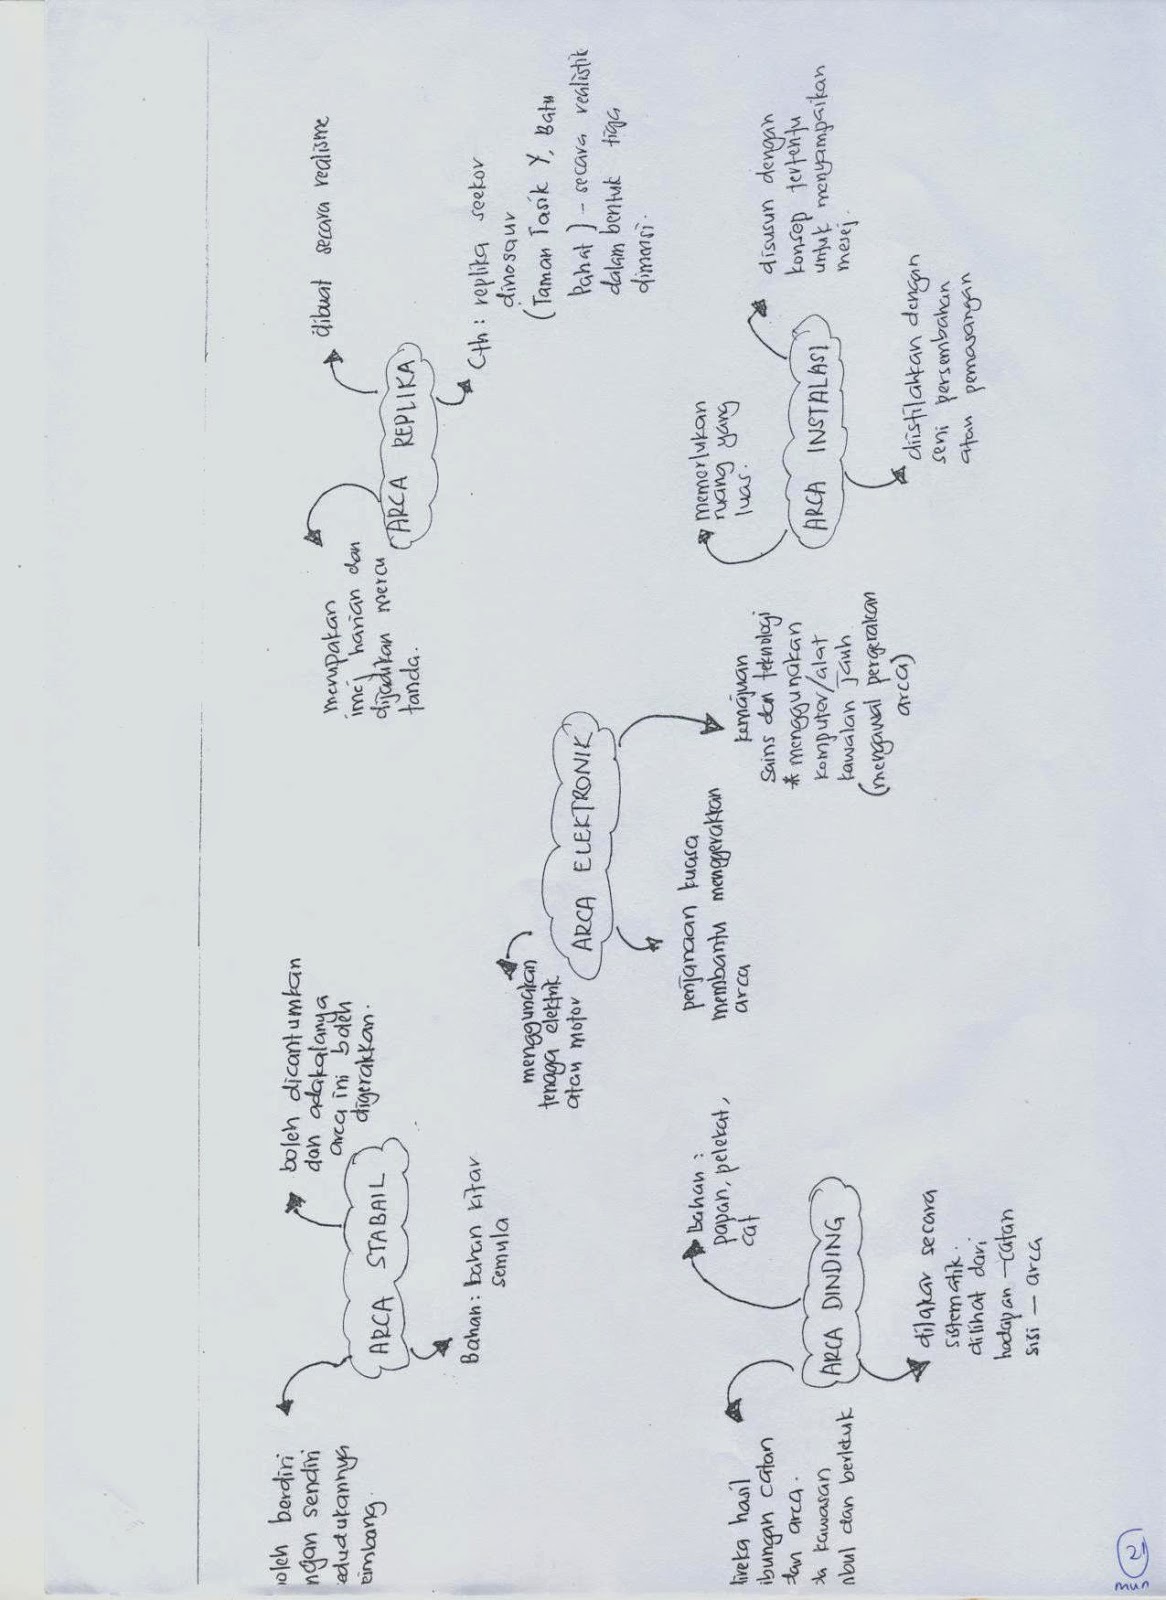 oleh berdiri
ngan sendiri
edudukannya
eimbang.
boleh dicantumkan
dan adakalanya
arca ini boleh
digerakkan.
ARCA STABAIL
Bahan: bahan kitar
semula
merupakan
imej harian dan
dijadikan mercu
tanda.
dibuat secara realisme
ARCA REPLIKA
Cth: replika seekor
dinosaur
(Taman Tasik Y, Batu
Pahat) - secara realistik
dalam bentuk tiga
dimensi.
menggunakan
tenaga elektrik
atau motor
ARCA ELEKTRONIK
penjanaan kuasa
membantu menggerakkan
arca
kemajuan
sains dan teknologi
* menggunakan
komputer/alat
kawalan jauh
(mengawal pergerakan
arca)
direka hasil
ibungan catan
dan arca.
da kawasan
nbul dan berlekuk
Bahan:
papan, pelekat,
cat
ARCA DINDING
dilakar secara
sistematik.
dilihat dari
hadapan - catan
sisi - arca
memerlukan
ruang yang
luas.
disusun dengan
konsep tertentu
untuk menyampaikan
mesej.
ARCA INSTALASI
diistilahkan dengan
seni persembahan
atau pemasangan
mun 21